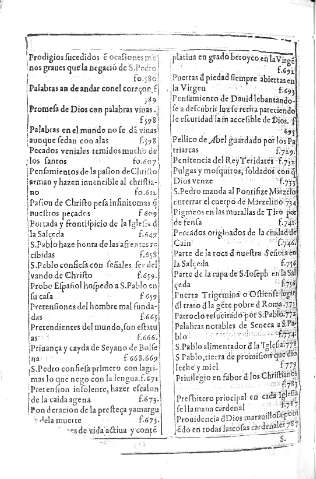 Prodigios sucedidos ē ocasiones me
nos graues que la negaciō de S. Pedro
fo.580
Palabras an de andar con el coraçon, f.
589
Promesa de Dios con palabras vivas.
f 598
Palabras en el mundo no se dā vinas
aunque sedan con alas f 598
Pecados veniales remidos mucho de
los santos fo.607.
Pensamientos de la pasiō de Christo
arman y hazen inuencible al christia-
no fo.612
Pasion de Christo pesa infinitomas q̄
nuestros peçados f 609
Portada y frontispicio de la Iglesia d̄
la Salçeda f.647.
S. Pablo haze honra de las afrentas re
cibidas f.658
S. Pablo confiesa con señales ser del
vando de Christo f.659.
Probo Español hospeda a S. Pablo en
su casa f 659
Pretensiones del hombre mal funda-
das f.665
Pretendientes del mundo, sun estatu
as f.666.
Priuança y cayda de Seyano de Bolse
na f 668.669
S. Pedro confiesa primero con lagri-
mas lo que nego con la lengua. f.671
Pretension insolente, hazer escalon
de la caida agena f.673.
Ponderacion de la presteça yamargu
dela muerte f.675.
es de vida activa y contē
platiua en grado heroyco en la Virgē
f.692
Puertas d̄ piedad siempre abiertas en
la Virgen f.693
Pensamiento de Dauid lebantando-
se a descubrir luz se recita pareciendo
le escuridad la in accesible de Dios. f.
695
Pellico de Abel guardado por los Pa
triarcas f.729.
Penitencia del Rey Teridates f.732
Pulgas y mosquitos, soldados con q̄
Dios venze f.733
S. Pedro manda al Pontifize Marzelo
enterrar el cuerpo de Marzelino 734
Pigmeos en las murallas de Tiro por
defensa f.742.
Pecados originados de la ciudad de
Cain f.746.
Parte de la toca d̄ nuestra Señora en
la Salçeda f.756
Parte de la ropa de S. Ioseph en la Sal
çeda f.756
Puerta Trigemina o Ostiense
d̄l trato d̄ la gēte pobre d̄ Roma. 771
Patroclo resucitado por S. Pablo. 772
Palabras notables de Seneca a S. Pa-
blo f.774.
S. Pablo alimentador d̄ la Iglesia. 778
S. Pablo, tierra de promision que dio
leche y miel f.779
Priuilegio en fabor d̄ los Christianos
f.783
Presbitero principal en cada Iglesia
se llamana cardenal f.787
Prouidencia d̄ Dios marauillosa
do en todas las cosas cardenales 787
S.